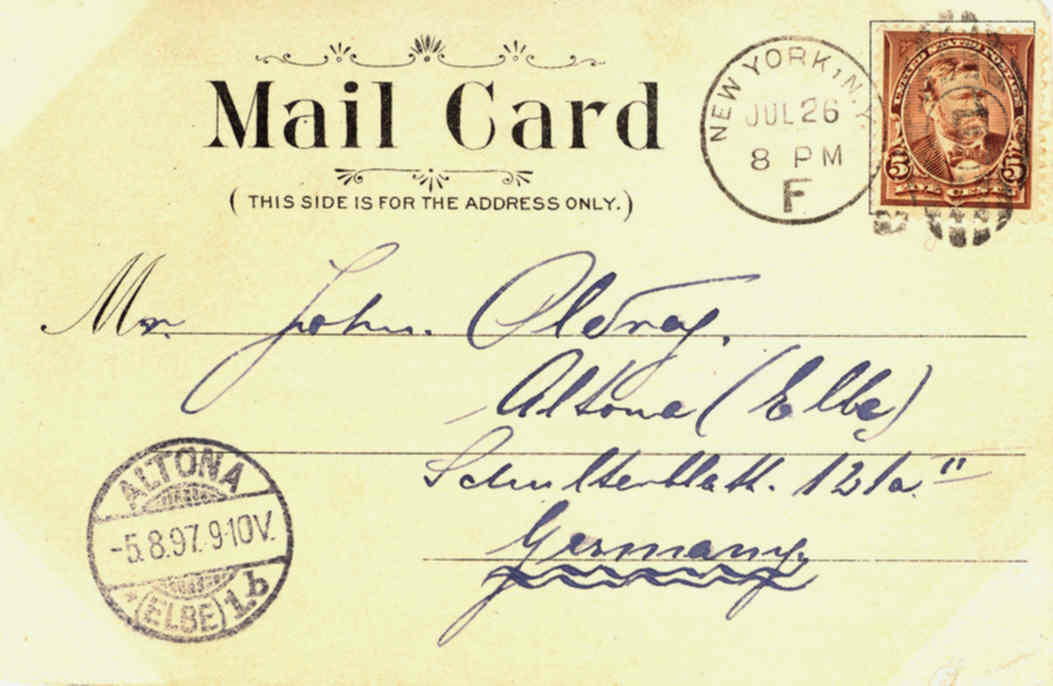 Mail Card
(THIS SIDE IS FOR THE ADDRESS ONLY.)
NEW YORK, N.Y.
JUL 26
8 PM
F
UNITED STATES POSTAGE
5 5
FIVE CENTS
Mr. John.
Altona (Elbe)
Schulterblatt. 121a."
Germany.
ALTONA
-5.8.97.9-10V.
*(ELBE)1.b